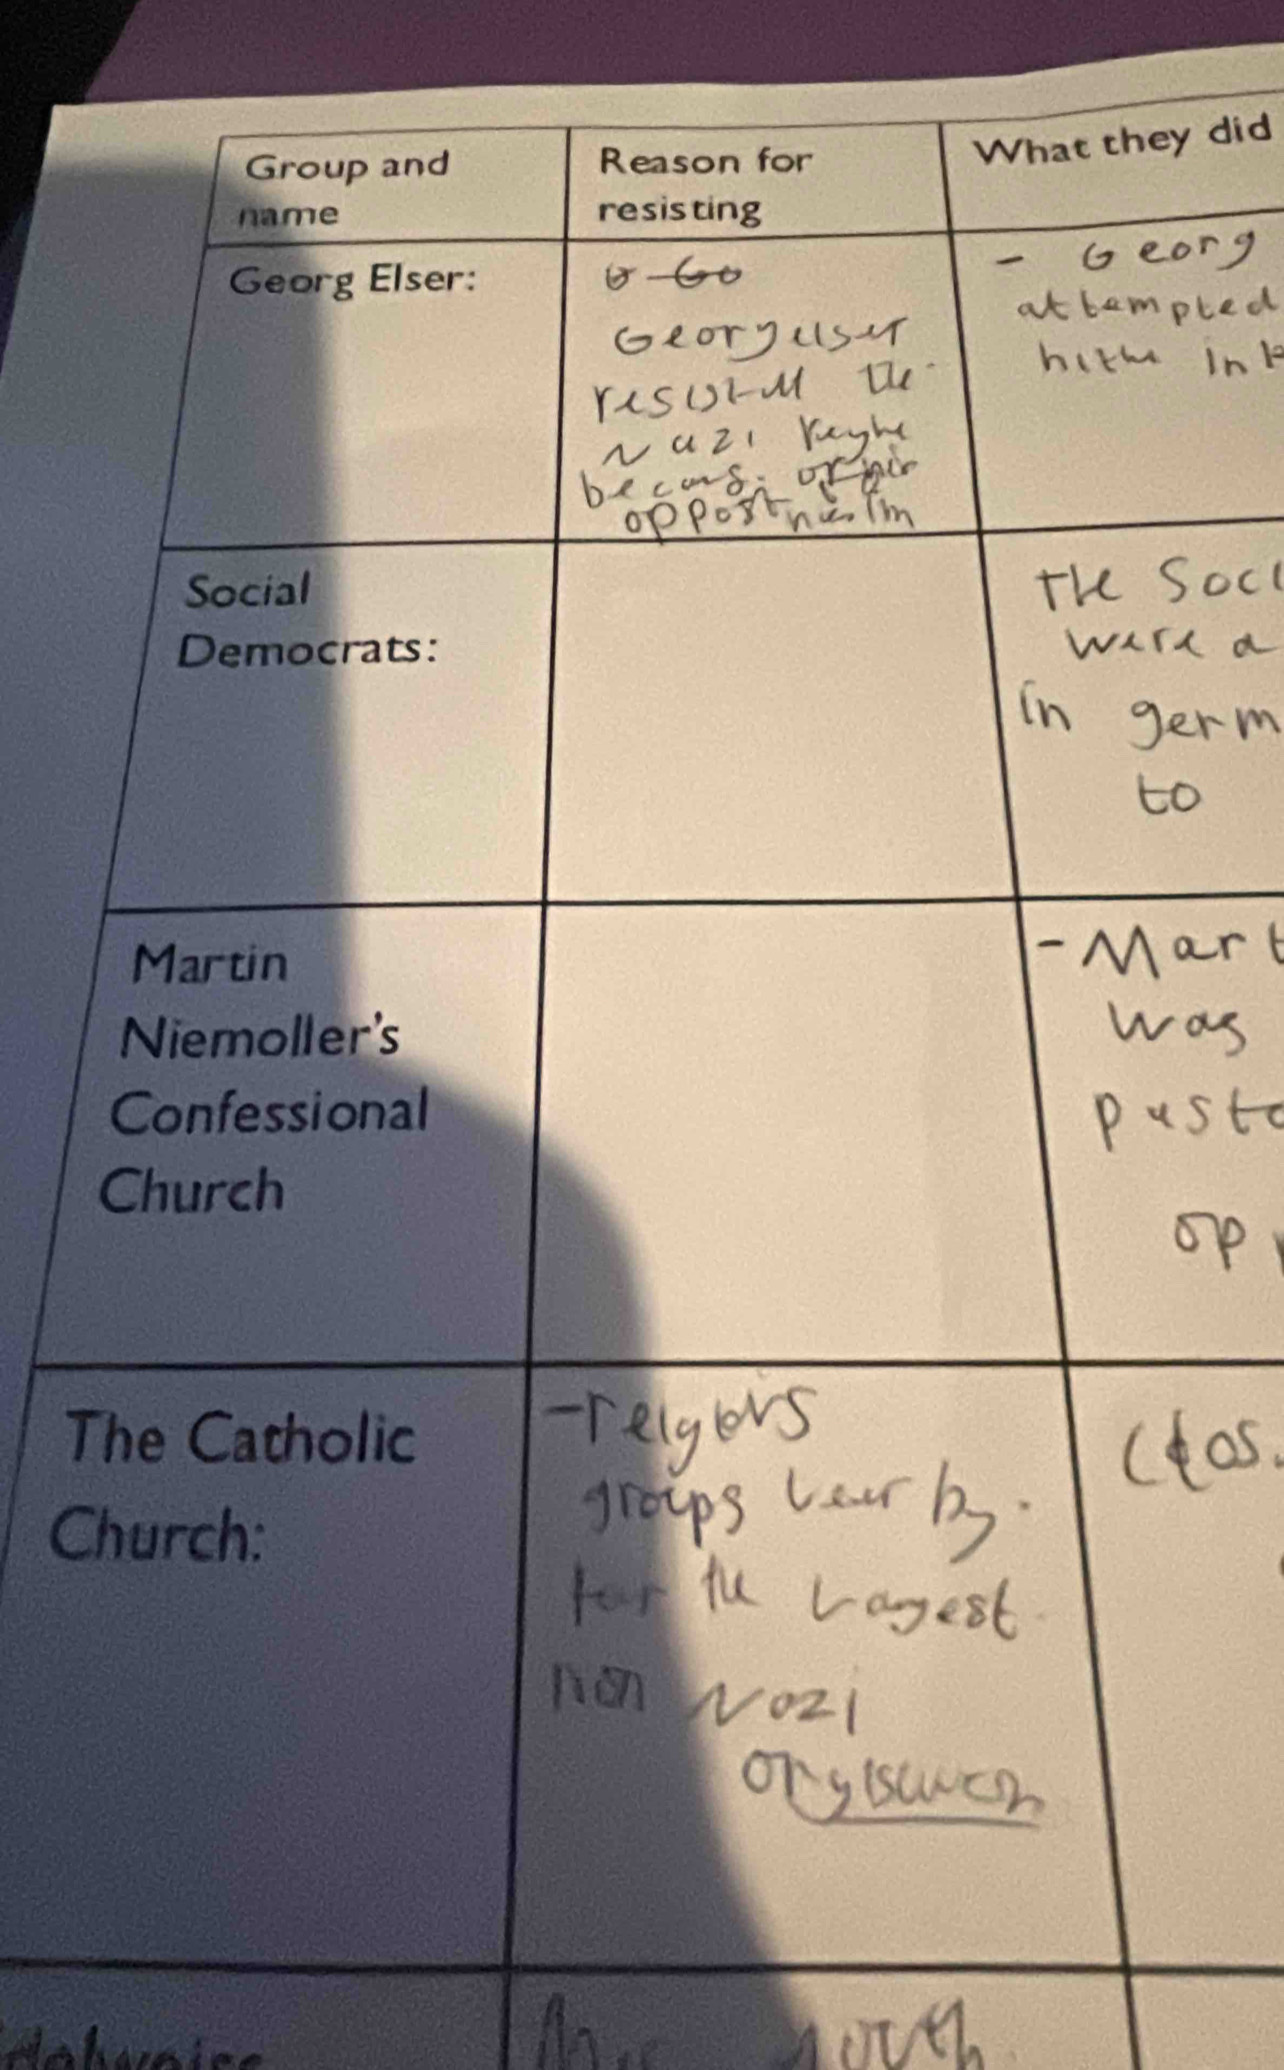 Group and
name
Reason for
resisting
What they did
Georg Elser:
Georg elser
resisted the
Nazi
because of his
oppost
- Georg
attempted
in
Social
Democrats:
The Soci
were a
in germ
to
Martin
Niemoller's
Confessional
Church
- Mart
was
pasto
opp
The Catholic
Church:
-
groups by
far the largest
non Nazi
youth